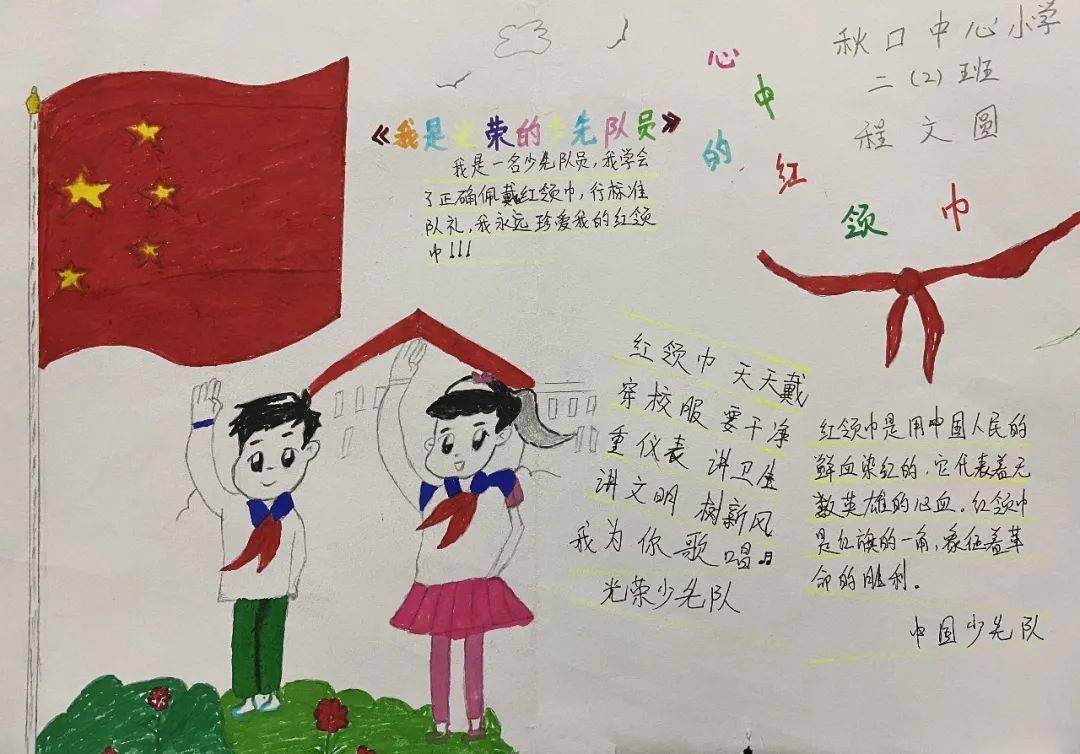 秋口中心小学
二(2)班
程文圆
心中的红领巾
《我是光荣的少先队员》
我是一名少先队员,我学会
了正确佩戴红领巾,行标准
队礼,我永远珍爱我的红领
巾!!!
红领巾 天天戴
穿校服 要干净
重仪表 讲卫生
讲文明 树新风
我为你歌唱♫
光荣少先队
红领巾是用中国人民的
鲜血染红的,它代表着无
数英雄的心血。红领巾
是红旗的一角,象征着革
命的胜利。
中国少先队